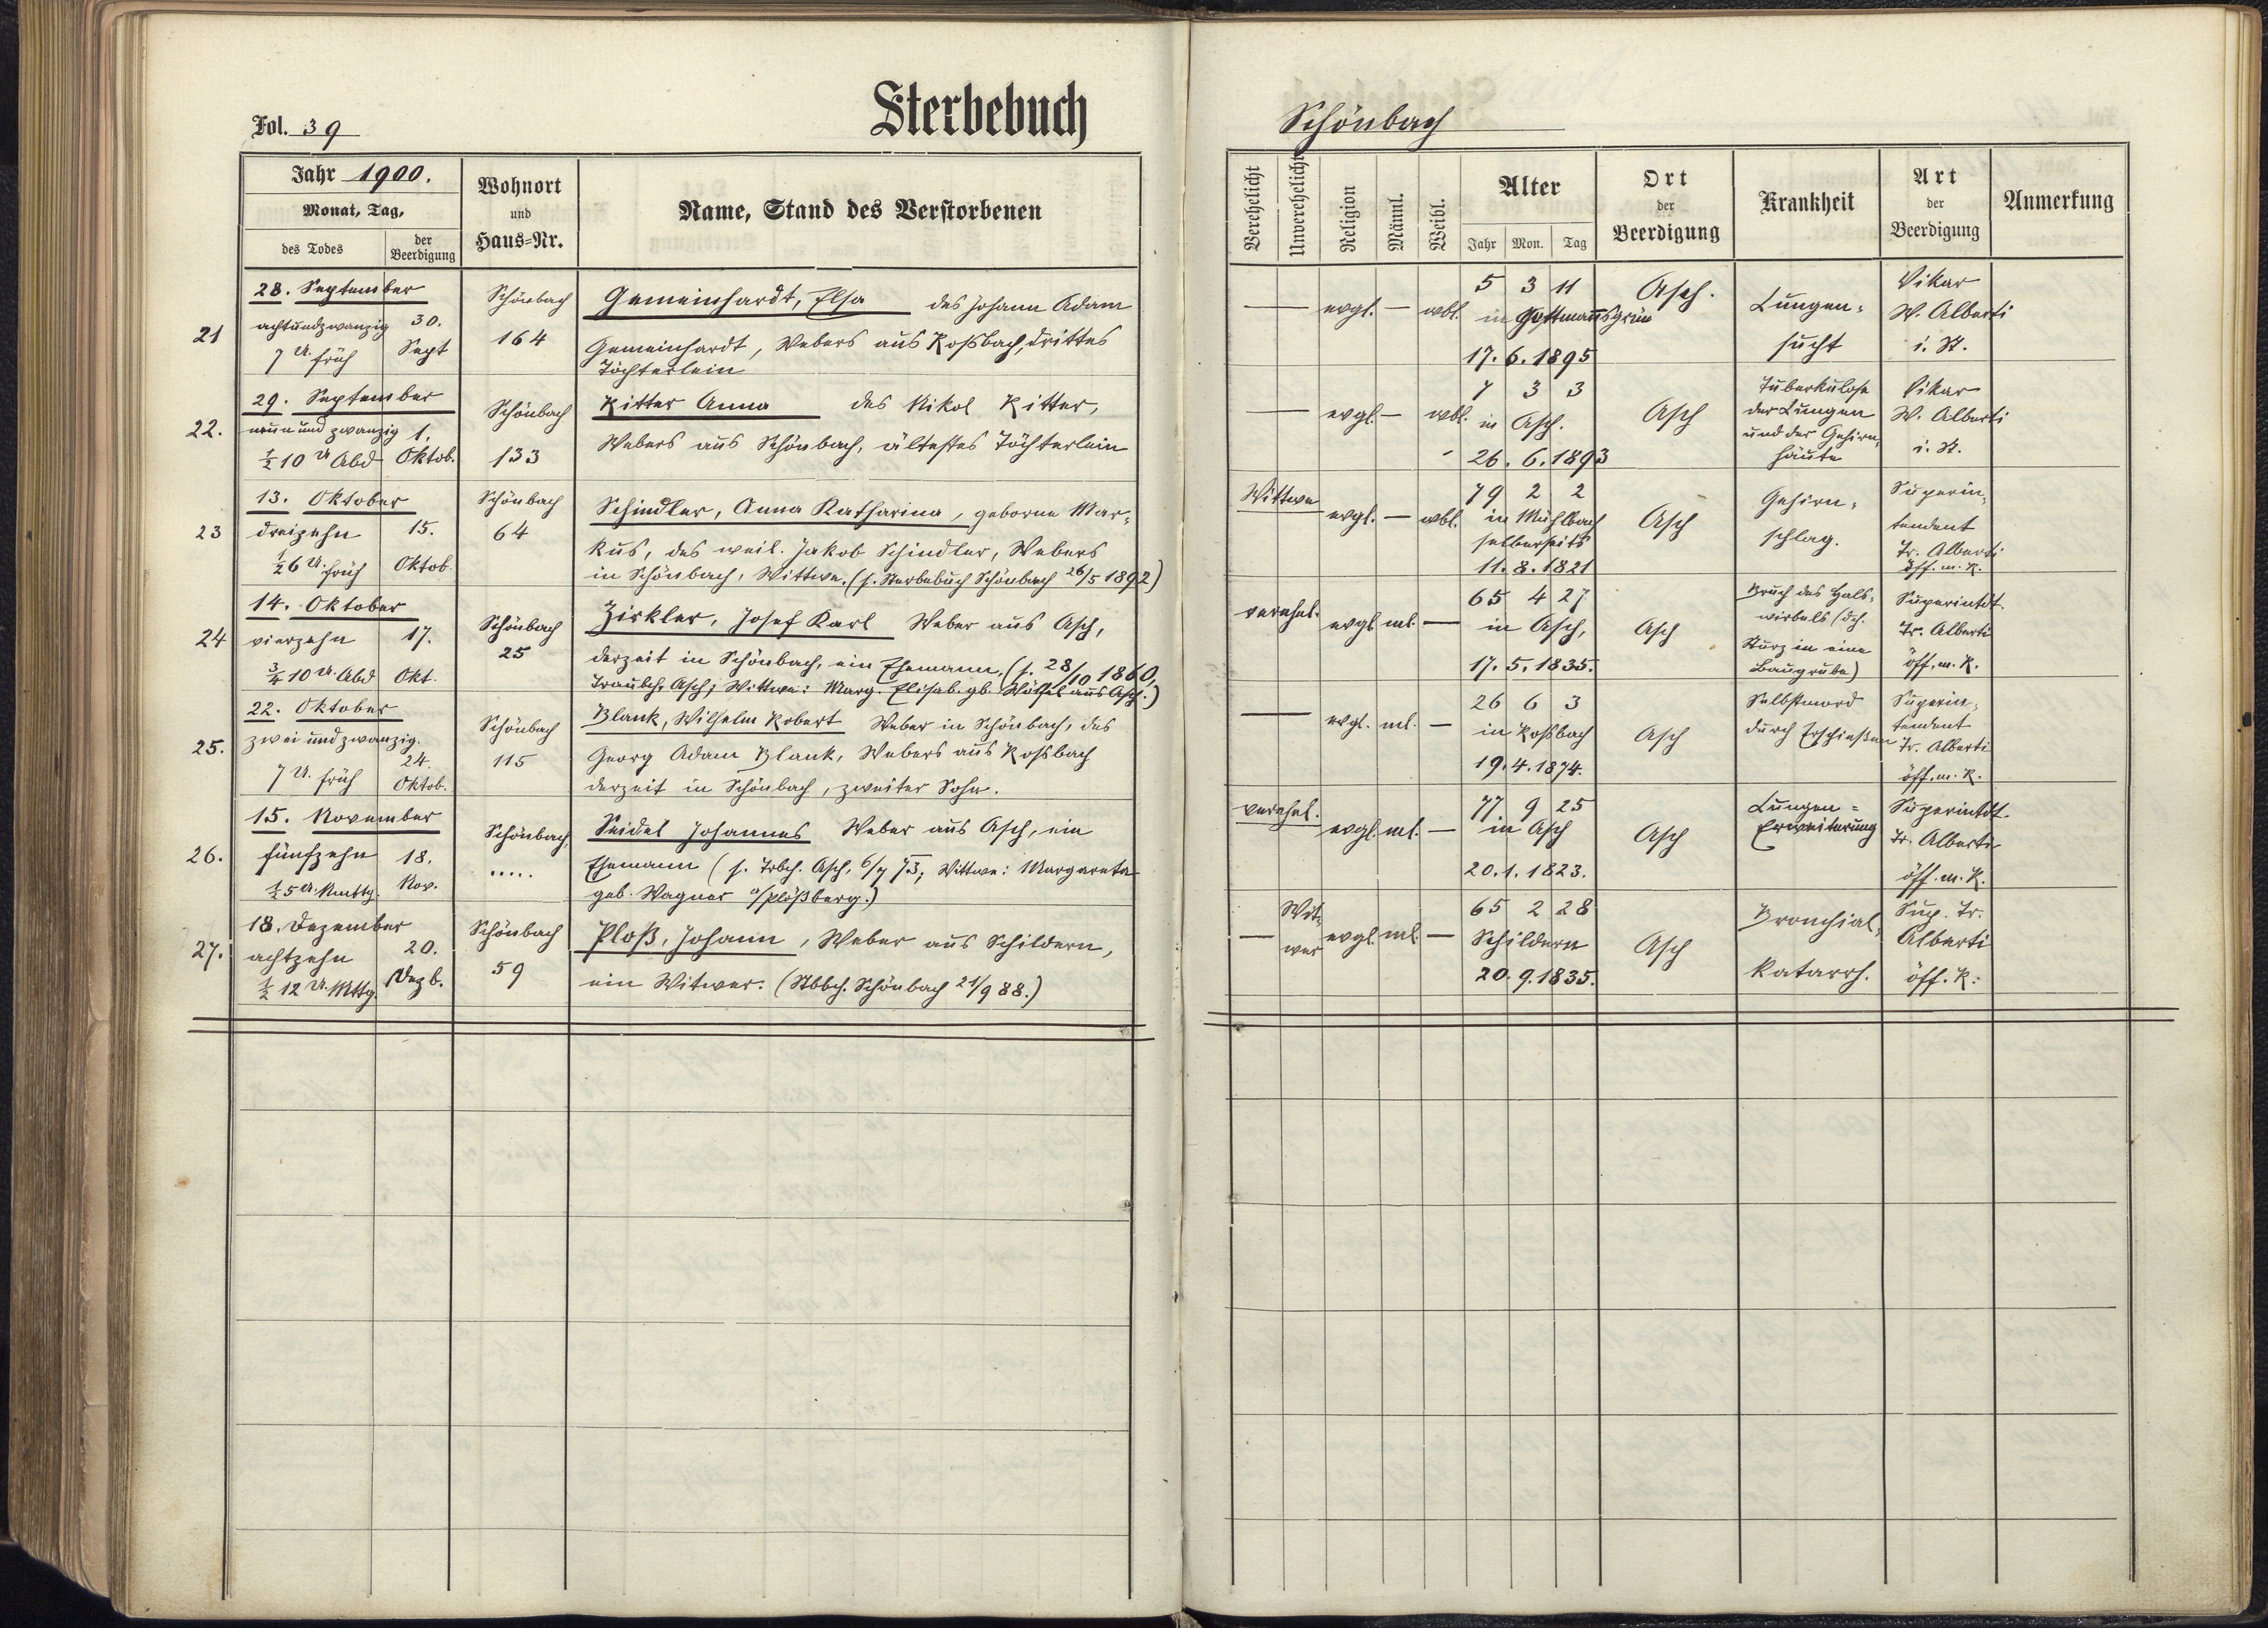 Fol. 39
Sterbebuch
Schönbach
Jahr 1900.
Monat, Tag,
des Todes
der Beerdigung
Wohnort
und
Haus=Nr.
Name, Stand des Verstorbenen
Verehelicht
Unverehelicht
Religion
Männl.
Weibl.
Alter
Jahr Mon. Tag
Ort
der
Beerdigung
Krankheit
Art
der
Beerdigung
Anmerkung
21
28. September
achtundzwanzig 30.
7 U. früh Sept
Schönbach
164
Gemeinhardt, Elsa des Johann Adam
Gemeinhardt, Webers aus Roßbach, drittes
Töchterlein
— evgl. — wbl.
5 3 11
in Gottmannsgrün
17. 6. 1895
Asch.
Lungen=
sucht
Vikar
W. Alberti
i. St.
22.
29. September
neun und zwanzig 1.
½ 10 U Abd Oktob.
Schönbach
133
Ritter Anna des Nikol Ritter,
Webers aus Schönbach, ältestes Töchterlein
— evgl. — wbl.
7 3 3
in Asch.
26. 6. 1893
Asch
Tuberkulose
der Lungen
und der Gehirn=
häute
Vikar
W. Alberti
i. St.
23
13. Oktober
dreizehn 15.
½ 6 U. früh Oktob.
Schönbach
64
Schindler, Anna Katharina, geborne Mar=
kus, des weil. Jakob Schindler, Webers
in Schönbach, Wittwe. (s. Sterbebuch Schönbach 26/5 1892)
Wittwe evgl. — wbl.
79 2 2
in Mühlbach
selberseits
11. 8. 1821
Asch
Gehirn=
schlag.
Superin=
tendent
Tr. Alberti
öff. m. R.
24
14. Oktober
vierzehn 17.
¾ 10 U. Abd Okt.
Schönbach
25
Zirkler, Josef Karl Weber aus Asch,
derzeit in Schönbach, ein Ehemann, (s. 28/10 1860,
Traubch. Asch; Wittwe: Marg. Elisab. gb. Wölfel aus Asch.)
verehel. evgl. ml. —
65 4 27
in Asch,
17. 5. 1835.
Asch
Bruch des Hals=
wirbels (dch.
Sturz in eine
Baugrube)
Superintdt.
Tr. Alberti
öff. m. R.
25.
22. Oktober
zwei und zwanzig. 24.
7 U. früh Oktob.
Schönbach
115
Blank, Wilhelm Robert Weber in Schönbach, des
Georg Adam Blank, Webers aus Roßbach
derzeit in Schönbach, zweiter Sohn.
— evgl. ml. —
26 6 3
in Roßbach
19. 4. 1874.
Asch
Selbstmord
durch Erschießen
Superin=
tendent
Tr. Alberti
öff. m. R.
26.
15. November
fünfzehn 18.
½ 5 U. Nmttg. Nov.
Schönbach,
.....
Seidel Johannes Weber aus Asch, ein
Ehemann (s. Trbch. Asch, 6/7 73; Wittwe: Margareta
geb. Wagner a/Plößberg.)
verehel. evgl. ml. —
77 9 25
in Asch
20. 1. 1823.
Asch
Lungen=
Erweiterung
Superintdt.
Tr. Alberti
öff. m. R.
27.
18. Dezember
achtzehn 20.
½ 12 U. Mttg. Dezb.
Schönbach
59
Ploß, Johann, Weber aus Schildern,
ein Witwer. (Stbbch. Schönbach 21/9 88.)
— Wit=
wer evgl. ml. —
65 2 28
Schildern
20. 9. 1835.
Asch
Bronchial=
katarrh.
Sup. Tr.
Alberti
öff. R: